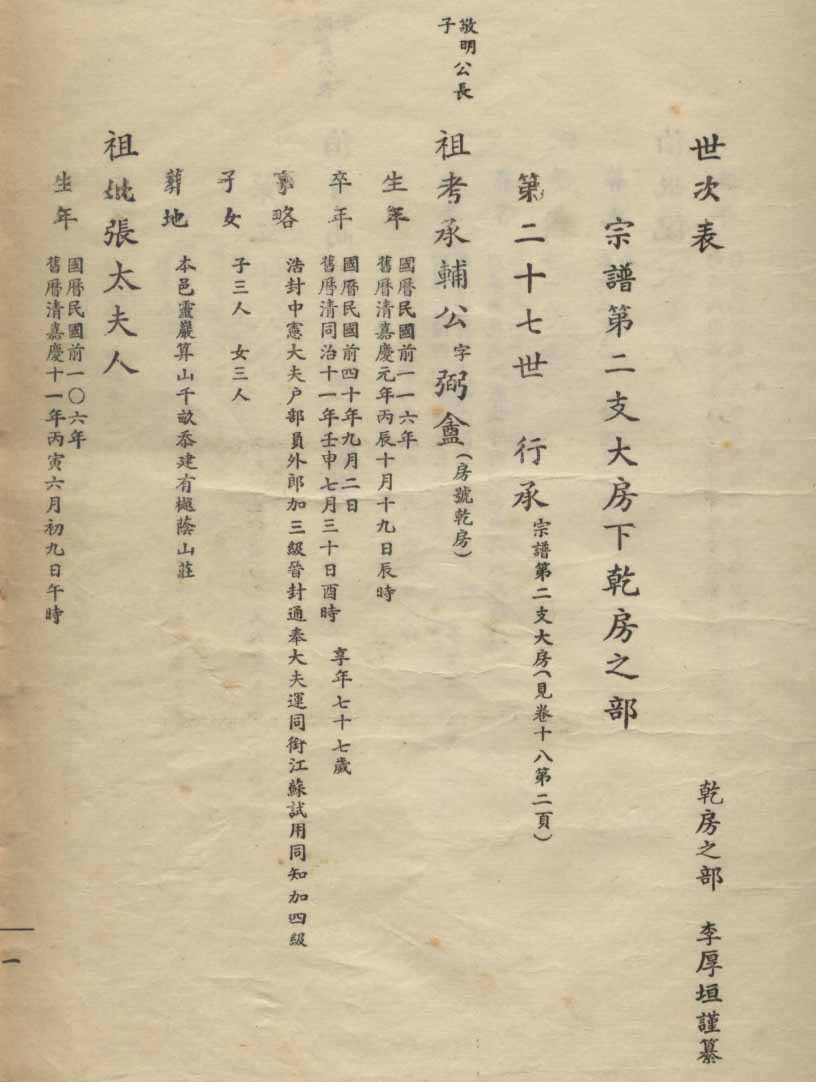 世次表　乾房之部　李厚垣謹纂
宗譜第二支大房下乾房之部
第二十七世　行承　宗譜第二支大房（見卷十八第二頁）
敬明公長
子
祖考承輔公　字　弼盦（房號乾房）
生年　國曆民國前一一六年
舊曆清嘉慶元年丙辰十月十九日辰時
卒年　國曆民國前四十年九月二日
舊曆清同治十一年壬申七月三十日酉時　享年七十七歲
事略　浩封中憲大夫户部員外郎加三級晉封通奉大夫運同銜江蘇試用同知加四級
子女　子三人　女三人
葬地　本邑靈巖算山千畝岙建有樾蔭山莊
祖妣張太夫人
生年　國曆民國前一〇六年
舊曆清嘉慶十一年丙寅六月初九日午時
一